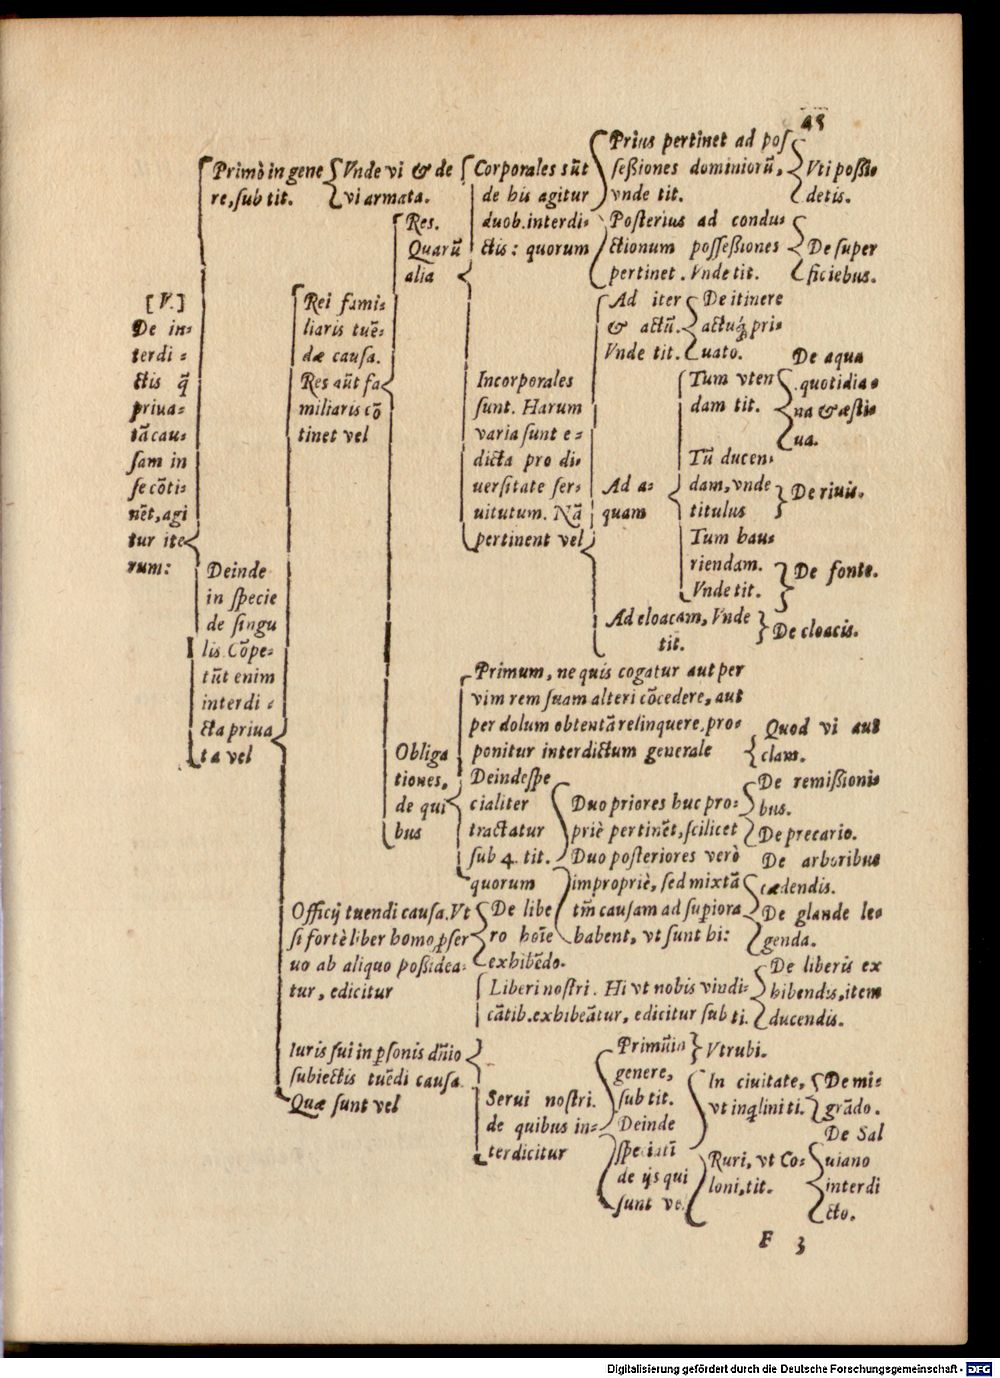 45
[V.]
De in-
terdi-
ctis q̃
priua-
tã cau-
sam in
se cōti-
nẽt, agi
tur ite
rum:
Primò in gene
re, sub tit.
Vnde vi & de
vi armata.
Deinde
in specie
de singu
lis. Cōpe-
tũt enim
interdi-
cta priua
ta vel
Rei fami-
liaris tuẽ-
dæ causa.
Res aũt fa
miliaris cō
tinet vel
Res.
Quarũ
alia
Corporales sũt
de his agitur
duob. interdi-
ctis: quorum
Prius pertinet ad pos
sessiones dominiorũ,
vnde tit.
Vti possi-
detis.
Posterius ad condu-
ctionum possessiones
pertinet. Vnde tit.
De super
ficiebus.
Incorporales
sunt. Harum
varia sunt e-
dicta pro di-
uersitate ser-
uitutum. Nã
pertinent vel
Ad iter
& actũ.
Vnde tit.
De itinere
actuq́ pri-
uato.
Ad a-
quam
Tum vten
dam tit.
De aqua
quotidia-
na & æsti-
ua.
Tũ ducen-
dam, vnde
titulus
De riuis.
Tum hau-
riendam.
Vnde tit.
De fonte.
Ad cloacam, Vnde
tit.
De cloacis.
Obliga
tiones,
de qui
bus
Primum, ne quis cogatur aut per
vim rem suam alteri cōcedere, aut
per dolum obtentã relinquere, pro-
ponitur interdictum generale
Quod vi aut
clam.
Deinde spe
cialiter
tractatur
sub 4. tit.
quorum
Duo priores huc pro-
priè pertinẽt, scilicet
De remissioni
bus.
De precario.
Duo posteriores verò
impropriè, sed mixtã
tm̃ causam ad supiora
habent, vt sunt hi:
De arboribus
cædendis.
De glande le-
genda.
Officij tuendi causa. Vt
si fortè liber homo p ser
uo ab aliquo possidea-
tur, edicitur
De libe
ro hoĩe
exhibẽdo.
Iuris sui in psonis dñio
subiectis tuẽdi causa.
Quæ sunt vel
Liberi nostri. Hi vt nobis vindi-
cãtib. exhibeãtur, edicitur sub ti.
De liberis ex
hibendis, item
ducendis.
Serui nostri.
de quibus in-
terdicitur
Primũ in
genere,
sub tit.
Vtrubi.
Deinde
speciatĩ
de ijs qui
sunt vel
In ciuitate,
vt inqlini ti.
De mi-
grãdo.
Ruri, vt Co-
loni, tit.
De Sal
uiano
interdi
cto.
F 3
Digitalisierung gefördert durch die Deutsche Forschungsgemeinschaft - DFG